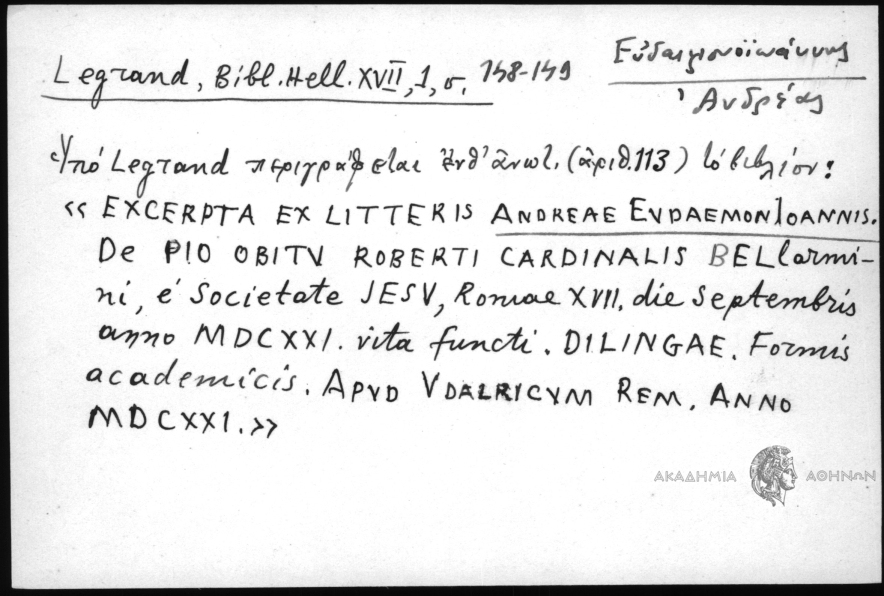 Legrand, Bibl. Hell. XVII, 1, σ. 148-149
Εὐδαιμονοϊωάννης
Ἀνδρέας
Ὑπό Legrand περιγράφεται ἐνθ' ἀνωτ. (ἀριθ. 113) τό βιβλίον:
« EXCERPTA EX LITTERIS ANDREAE EVDAEMONIOANNIS.
De PIO OBITV ROBERTI CARDINALIS BELlarmi-
ni, é Societate JESV, Romae XVII. die Septembris
anno MDCXXI. vita functi. DILINGAE. Formis
academicis. APVD VDALRICVM REM. ANNO
MDCXXI.»
ΑΚΑΔΗΜΙΑ ΑΘΗΝΩΝ